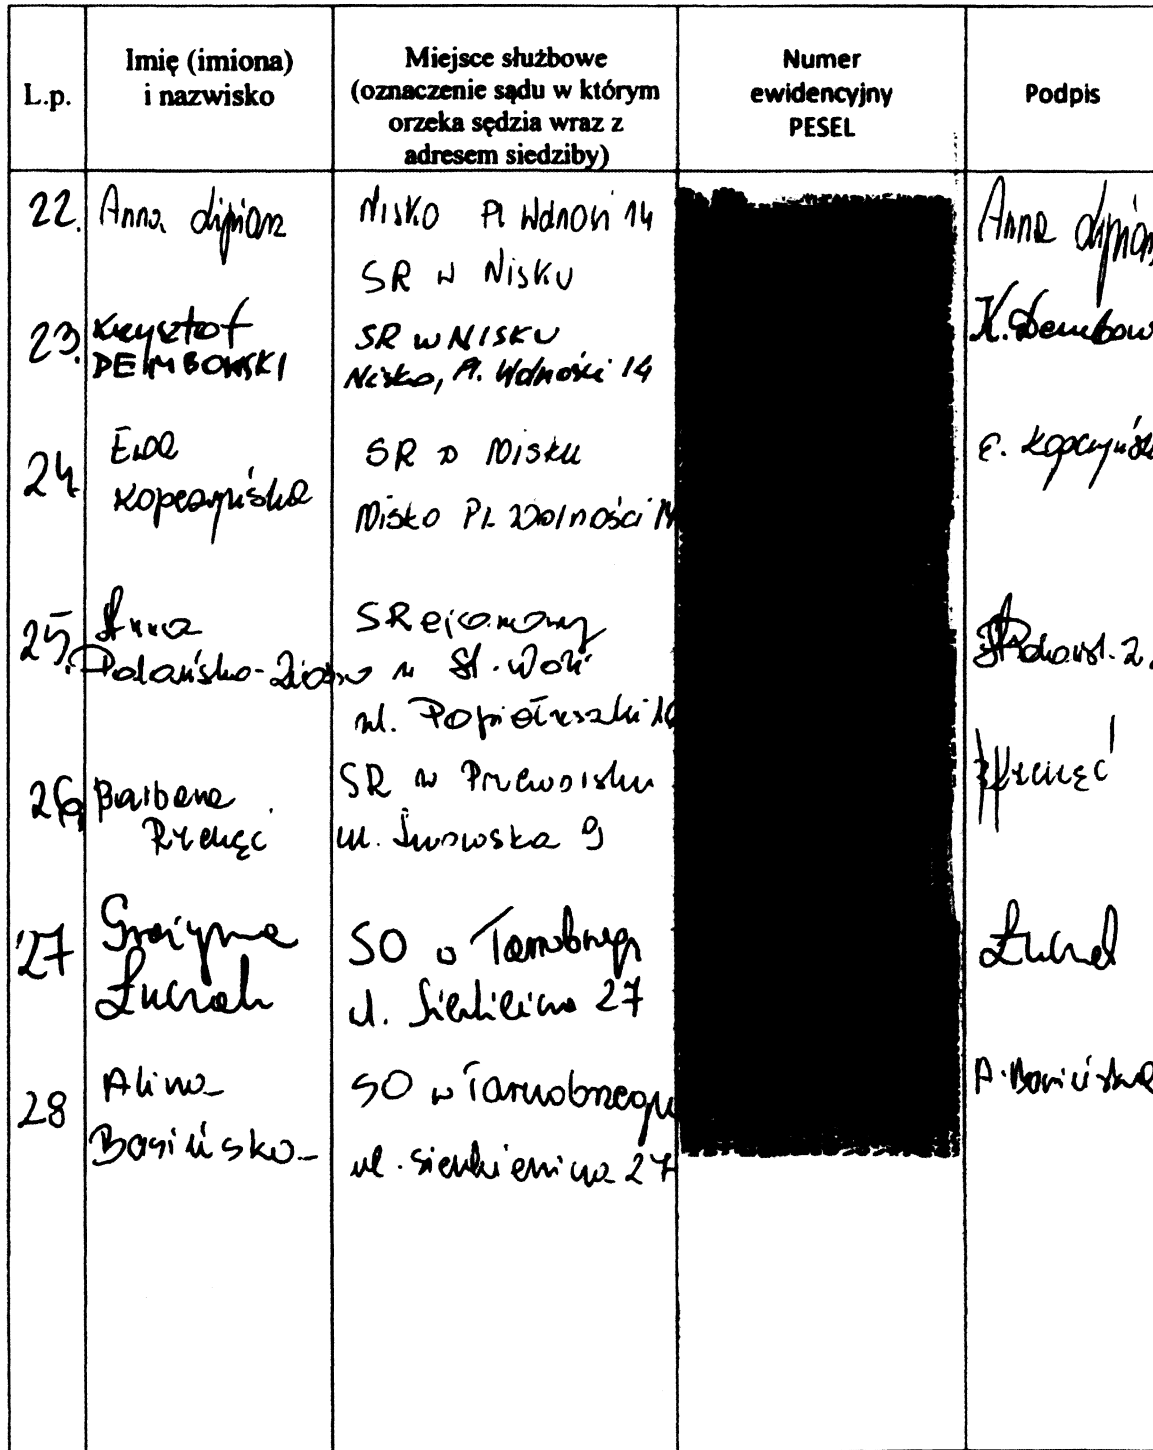 L.p.
Imię (imiona)
i nazwisko
Miejsce służbowe
(oznaczenie sądu w którym
orzeka sędzia wraz z
adresem siedziby)
Numer
ewidencyjny
PESEL
Podpis
22. Anna Lipiarz
Nisko Pl Wolności 14
SR w Nisku
Anna Lipiarz
23. Krzysztof
DEMBOWSKI
SR w NISKU
Nisko, Pl. Wolności 14
K. Dembow
24 Ewa
Kopczyńska
SR w Nisku
Nisko Pl. Wolności 14
E. Kopczyńska
25. Anna
Polańska-
SRejonowy
w St. Woli
ul. Popiełuszki
26 Barbara
SR w Przeworsku
ul. Lwowska 9
27 Grażyna
Łuczak
SO w Tarnobrzegu
ul. Sienkiewicza 27
Łuczak
28 Alina
Basińska
SO w Tarnobrzegu
ul. Sienkiewicza 27
A. Basińska